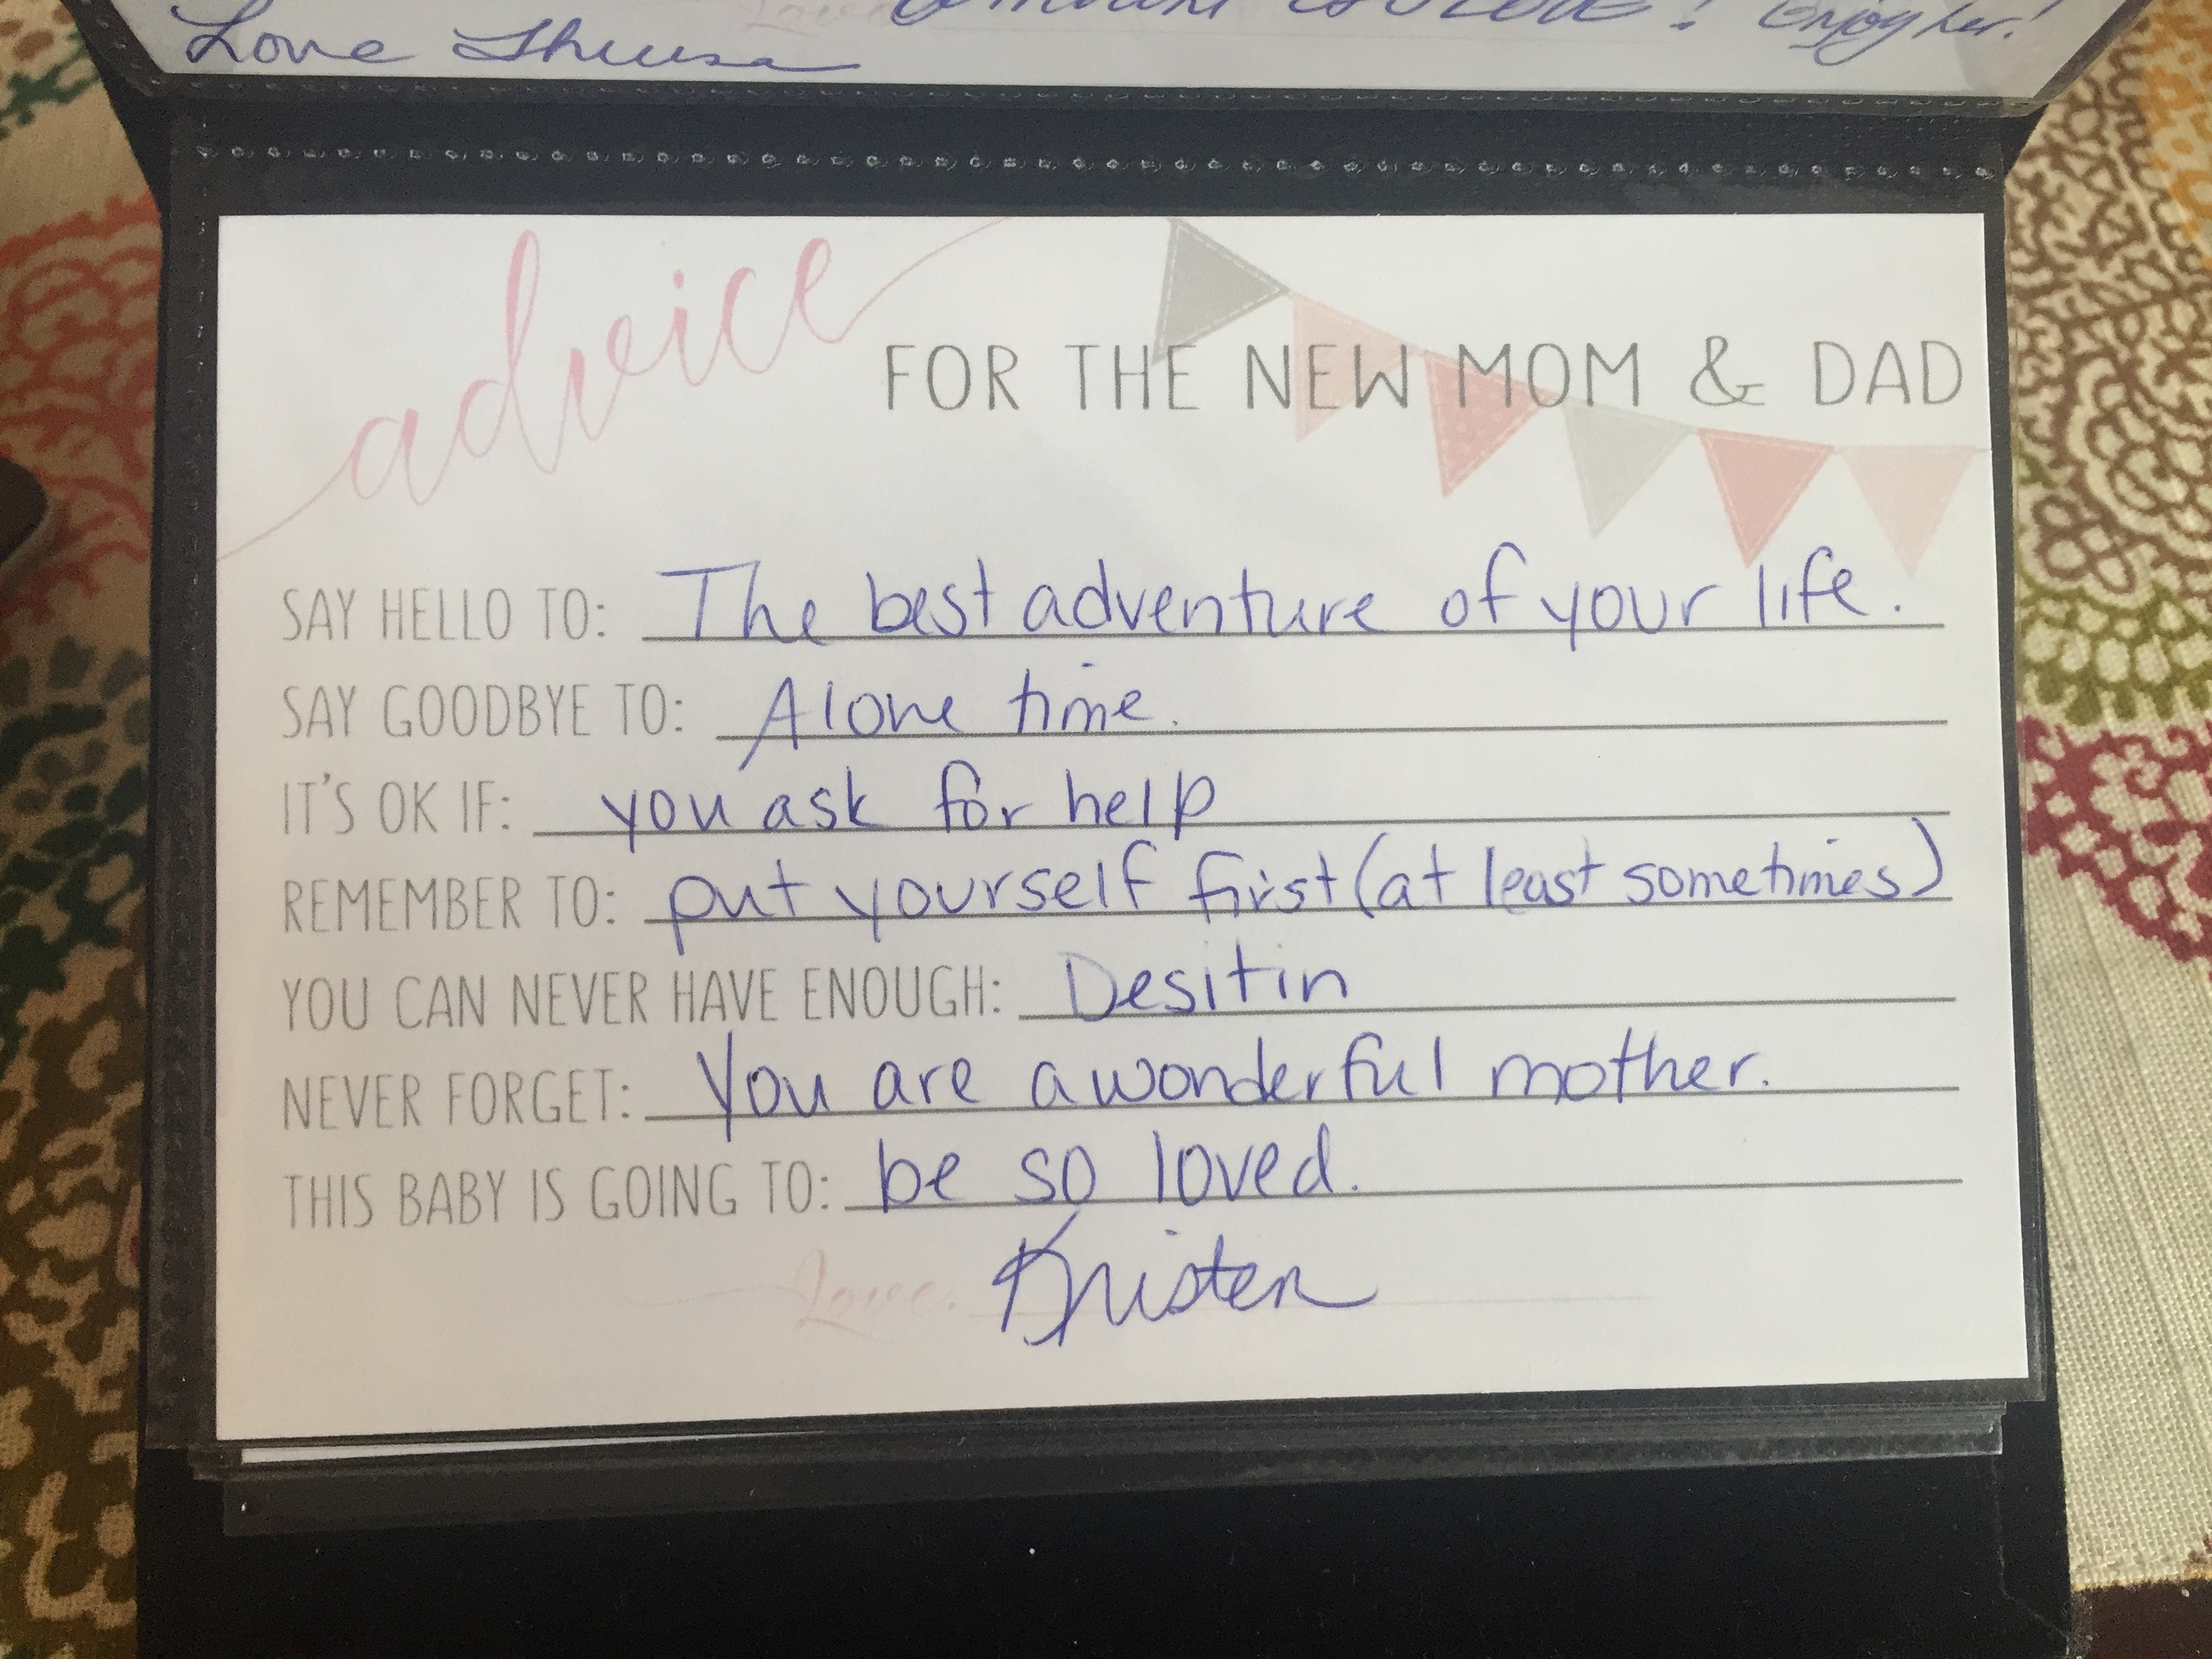 Love Theresa
Enjoy her!
advice
FOR THE NEW MOM & DAD
SAY HELLO TO: The best adventure of your life.
SAY GOODBYE TO: Alone time.
IT'S OK IF: you ask for help
REMEMBER TO: put yourself first (at least sometimes)
YOU CAN NEVER HAVE ENOUGH: Desitin
NEVER FORGET: You are a wonderful mother.
THIS BABY IS GOING TO: be so loved.
Love, Kristen